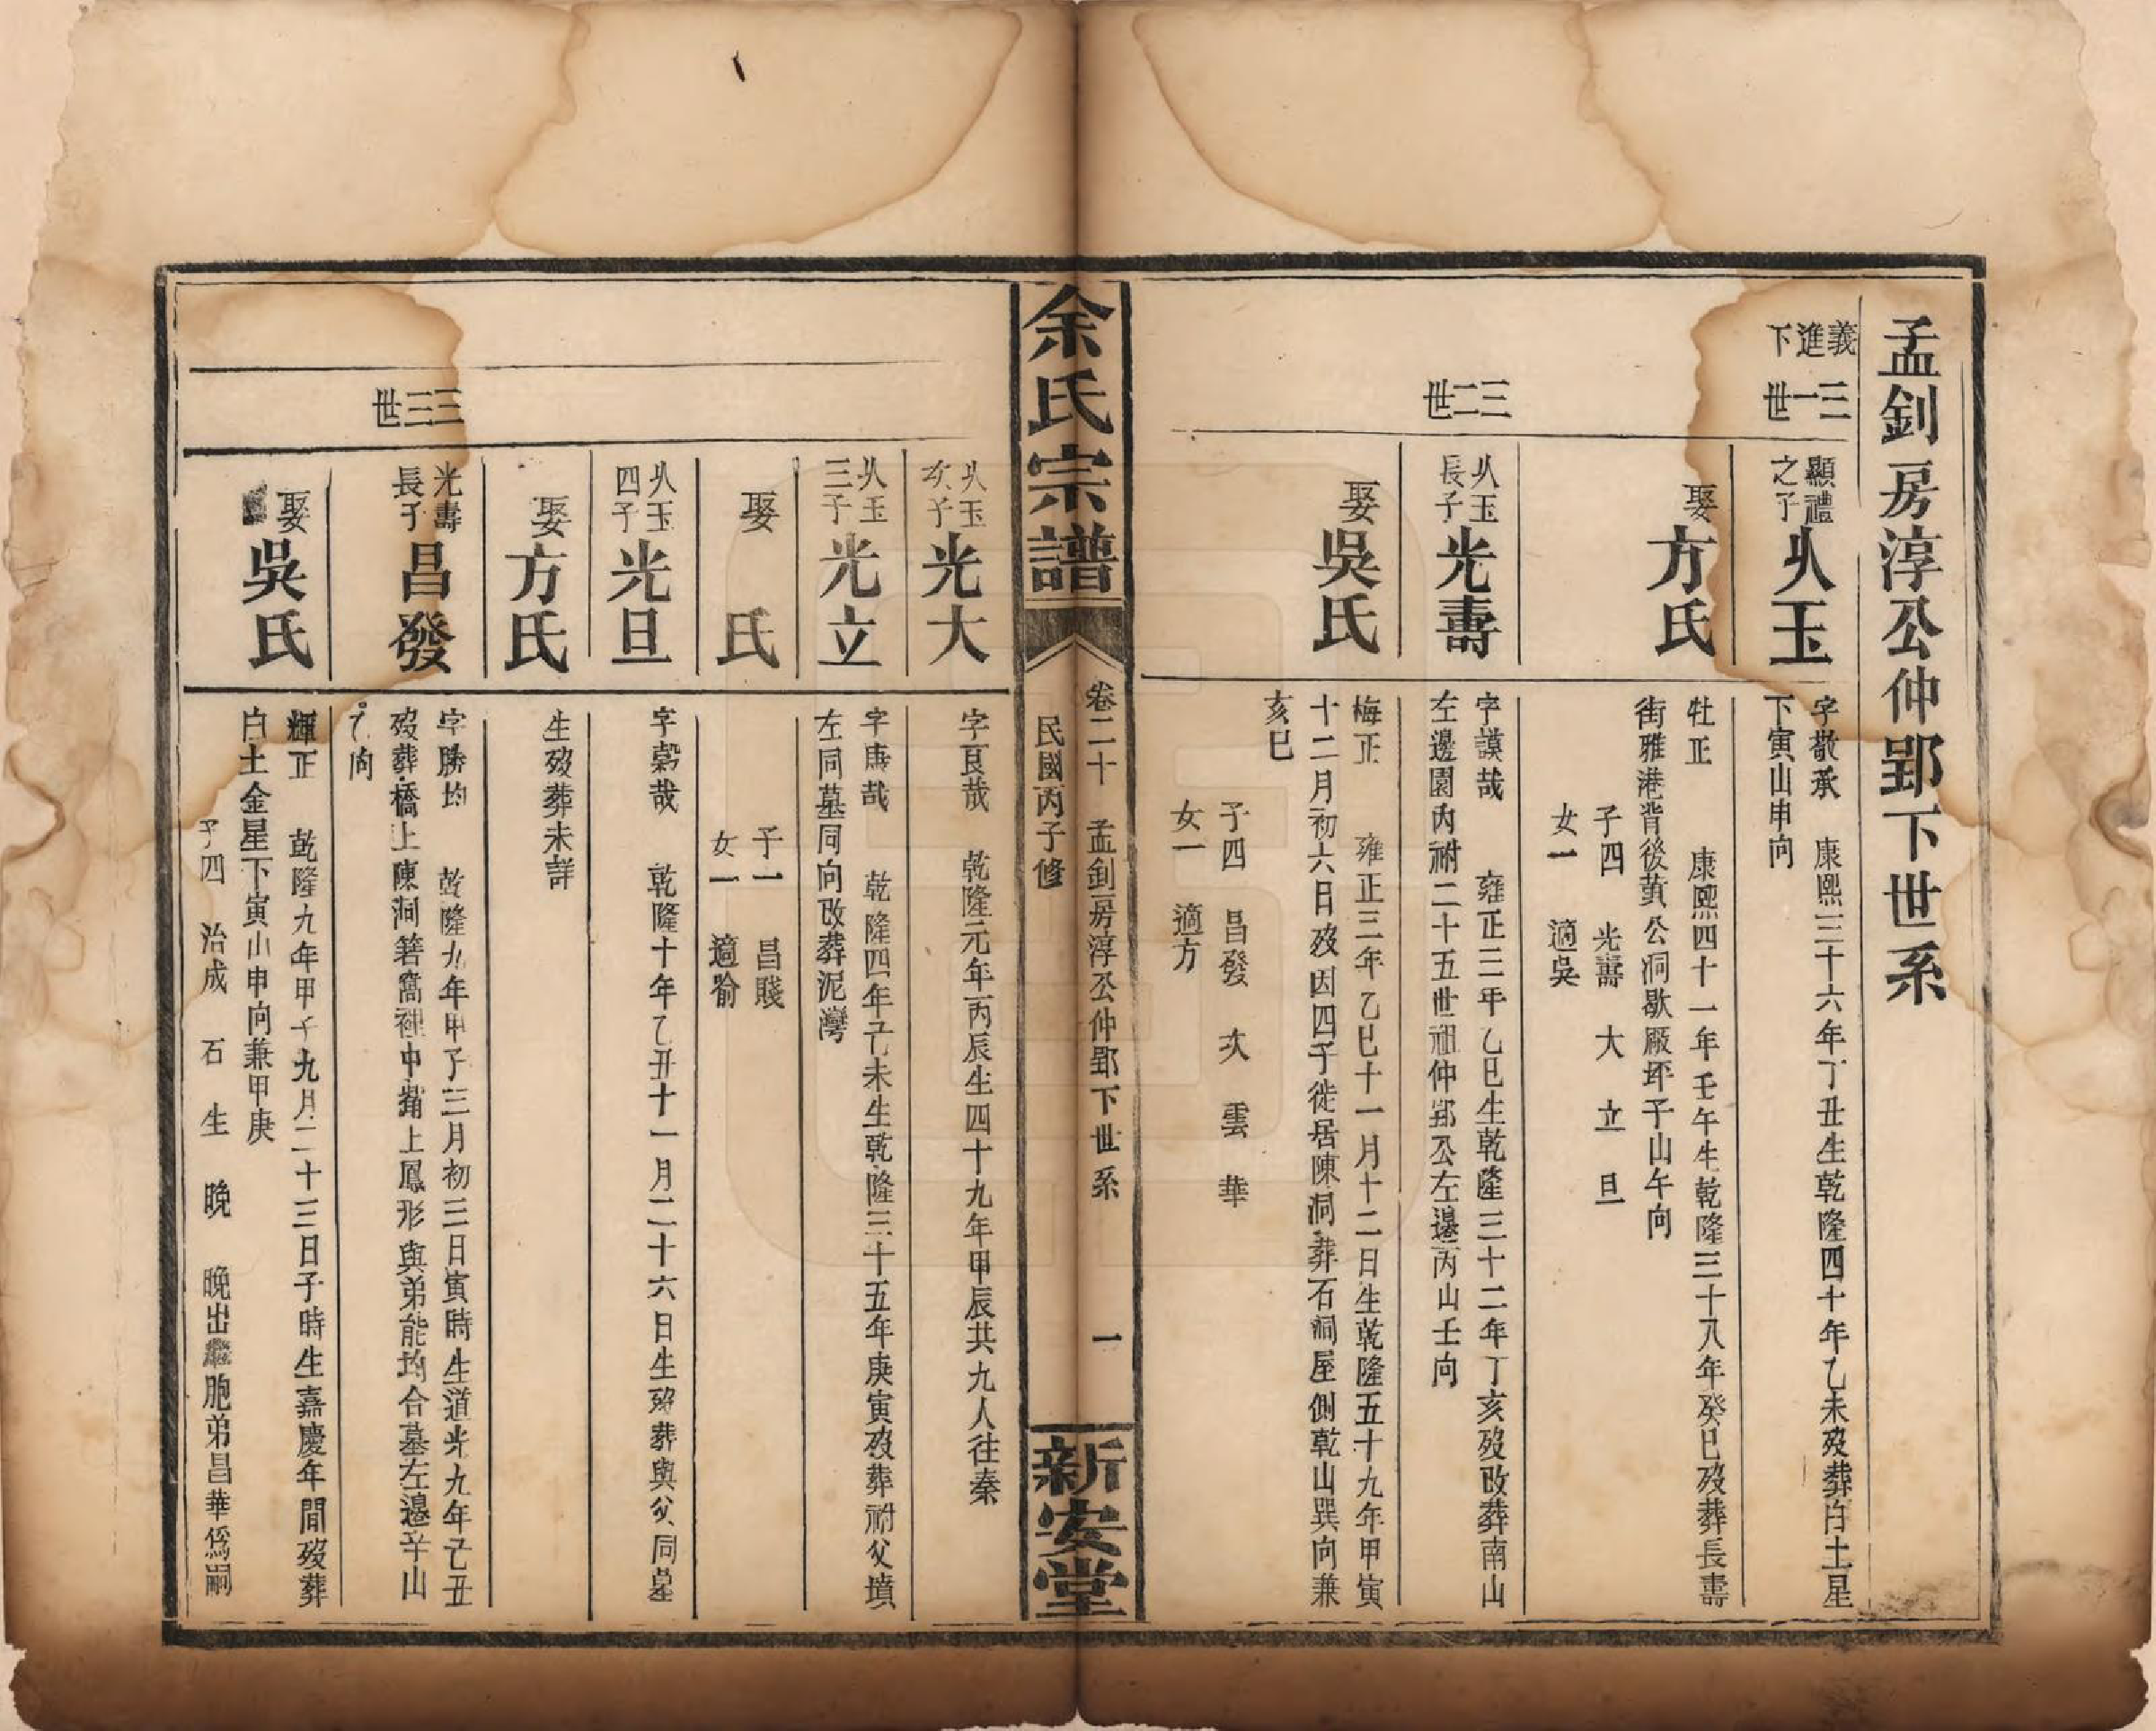 孟釗房淳公仲郢下世系
義進下
三一世
顯禮之子
㸚玉
字敬承 康熙三十六年丁丑生乾隆四十年乙未歿葬白土星
下寅山申向
娶方氏
牡正 康熙四十一年壬午生乾隆三十八年癸巳歿葬長壽
街雅港背後黃公洞歇厰坪子山午向
子四 光壽 大 立 旦
女一 適吳
三二世
㸚玉長子
光壽
字謨哉 雍正三年乙巳生乾隆三十二年丁亥歿改葬南山
左邊園內祔二十五世祖仲郢公左邊丙山壬向
娶吳氏
梅正 雍正三年乙巳十一月十二日生乾隆五十九年甲寅
十二月初六日歿因四子徙居陳洞葬石洞屋側乾山巽向兼
亥巳
子四 昌發 次 雲 華
女一 適方
余氏宗譜
卷二十 孟釗房淳公仲郢下世系 一
民國丙子修
新安堂
㸚玉次子
光大
字良哉 乾隆元年丙辰生四十九年甲辰共九人往秦
㸚玉三子
光立
字庚哉 乾隆四年己未生乾隆三十五年庚寅歿葬祔父墳
左同墓同向改葬泥灣
娶 氏
子一 昌賤
女一 適喻
㸚玉四子
光旦
字穀哉 乾隆十年乙丑十一月二十六日生歿葬與父同墓
娶方氏
生歿葬未詳
三三世
光壽長子
昌發
字勝均 乾隆九年甲子三月初三日寅時生道光九年己丑
歿葬橋上陳洞箬窩裡中㘭上鳳形與弟能均合墓左邊辛山
乙向
娶吳氏
輝正 乾隆九年甲子九月二十三日子時生嘉慶年間歿葬
白土金星下寅山申向兼甲庚
子四 治成 石 生 晚 晚出繼胞弟昌華爲嗣